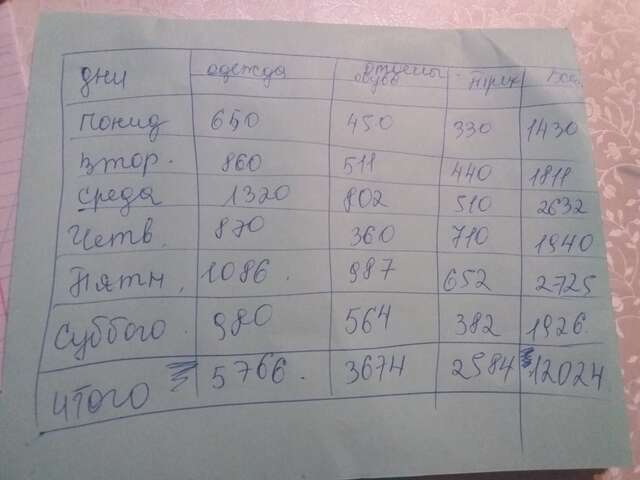 дни одежда обувь
понид 650 450 330 1430
втор. 860 511 440 1811
среда 1320 802 510 2632
Четв. 870 360 710 1940
Пятн. 1086. 987 652 2725
суббото. 980 564 382 1926.
итого 5766. 3674 2984 12024